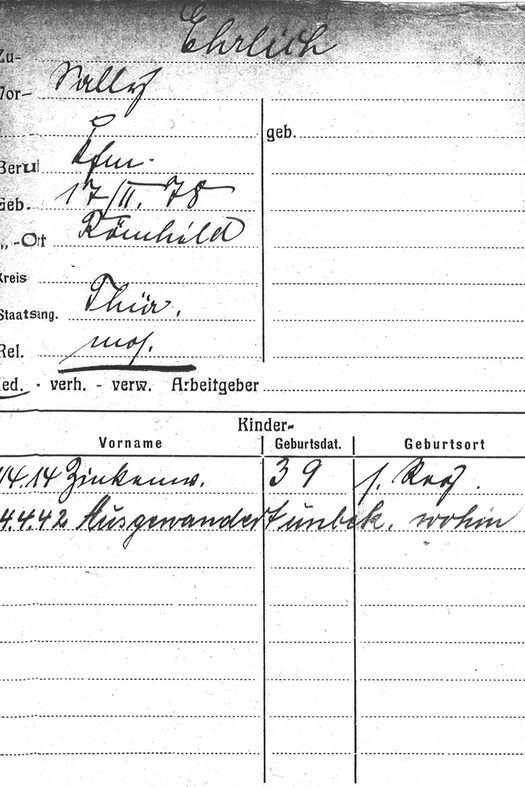 Zu- Ehrlich
Vor- Sally
geb.
Beruf Kfm.
Geb. 17/II. 78
„ -Ort Römhild
Kreis
Staatsang. Thür.
Rel. mos.
led. - verh. - verw. Arbeitgeber
Kinder-
Vorname Geburtsdat. Geburtsort
14.14 Zinkenw. 39
4.4.42 Ausgewandert unbek. wohin